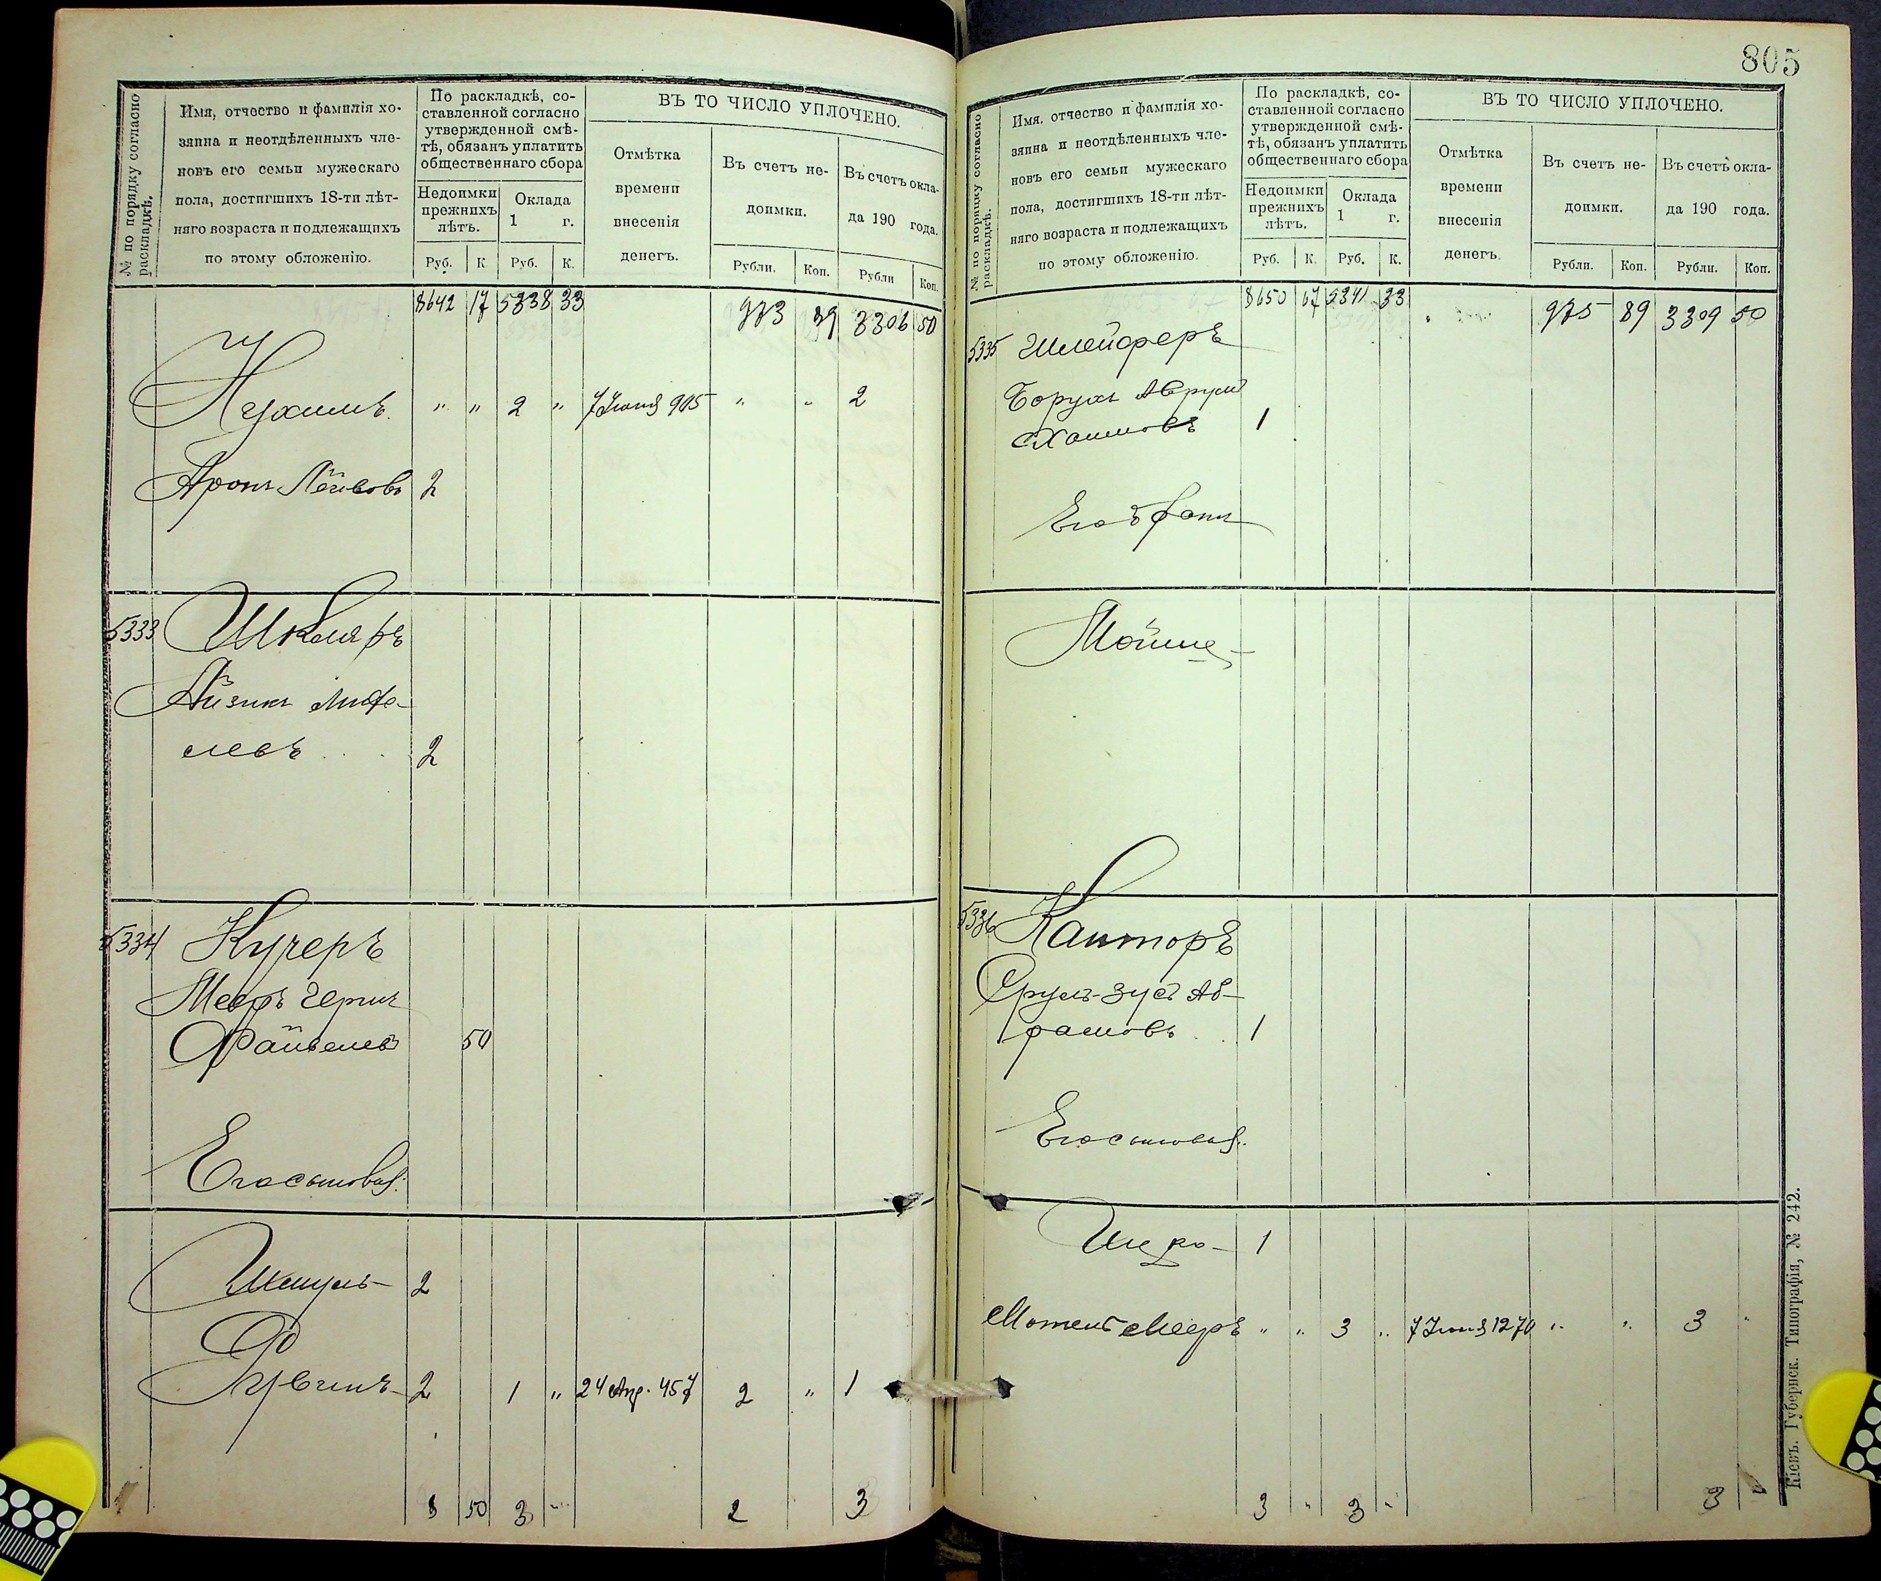 № по порядку согласно раскладкѣ.
Имя, отчество и фамилія хо-
зяина и неотдѣленныхъ чле-
новъ его семьи мужескаго
пола, достигшихъ 18-ти лѣт-
няго возраста и подлежащихъ
по этому обложенію.
По раскладкѣ, со-
ставленной согласно
утвержденной смѣ-
тѣ, обязанъ уплатить
общественнаго сбора
Недоимки прежнихъ лѣтъ.
Оклада 1 г.
Руб. К. Руб. К.
ВЪ ТО ЧИСЛО УПЛОЧЕНО.
Отмѣтка
времени
внесенія
денегъ.
Въ счетъ не-
доимки.
Въ счетъ окла-
да 190 года.
Рубли. Коп. Рубли Коп.
8642 17 5338 33 973 89 3306 50
Нухимъ. " " 2 " 7 Іюня 905 " " 2
Аронъ Лейбовъ 2
5333 Шкляръ
Айзикъ
елевъ 2
5334 Кучеръ
Мееръ Герш
Файвелев 50
Его сыновья:
Шмуль 2
Рувинъ 2 1 " 24 Апр. 457 2 " 1
8 50 3 " 2 3
805
№ по порядку согласно раскладкѣ.
Имя, отчество и фамилія хо-
зяина и неотдѣленныхъ чле-
новъ его семьи мужескаго
пола, достигшихъ 18-ти лѣт-
няго возраста и подлежащихъ
по этому обложенію.
По раскладкѣ, со-
ставленной согласно
утвержденной смѣ-
тѣ, обязанъ уплатить
общественнаго сбора
Недоимки прежнихъ лѣтъ.
Оклада 1 г.
Руб. К. Руб. К.
ВЪ ТО ЧИСЛО УПЛОЧЕНО.
Отмѣтка
времени
внесенія
денегъ.
Въ счетъ не-
доимки.
Въ счетъ окла-
да 190 года.
Рубли. Коп. Рубли. Коп.
8650 67 5341 33 975 89 3309 50
5335 Шлейферъ
Борухъ Аврум
Хаимовъ 1
Его
Мойше
5336 Канторъ
Срулъ-Зусь Аб-
рамовъ 1
Его сыновья:
1
Мотель Мееръ " " 3 " 7 Іюня 1270 " " 3 "
3 " 3 " 3 "
Кіевъ. Губернск. Типографія, № 242.